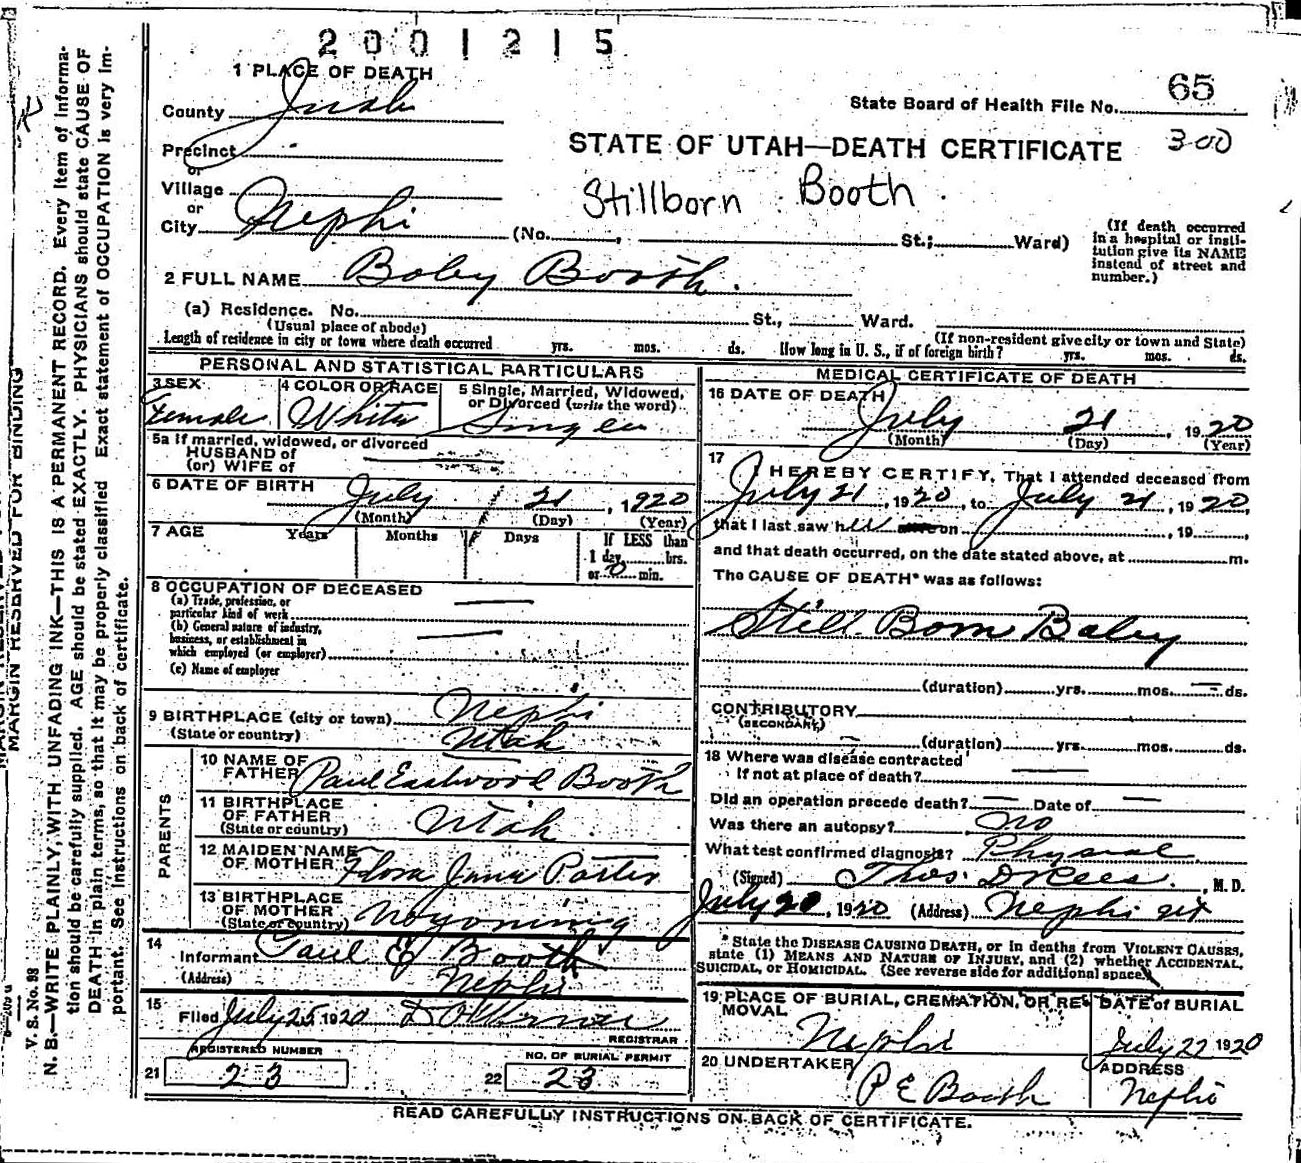 2001215
1 PLACE OF DEATH
County Juab
State Board of Health File No. 65
Precinct
or
STATE OF UTAH—DEATH CERTIFICATE 300
Village
or
Stillborn Booth
City Nephi (No. , St.; Ward)
(If death occurred in a hospital or insti-
tution give its NAME
instead of street and
number.)
2 FULL NAME Baby Booth.
(a) Residence. No. St., Ward.
(Usual place of abode) (If non-resident give city or town and State)
Length of residence in city or town where death occurred yrs. mos. ds. How long in U. S., if of foreign birth? yrs. mos. ds.
PERSONAL AND STATISTICAL PARTICULARS
3 SEX Female
4 COLOR OR RACE White
5 Single, Married, Widowed,
or Divorced (write the word)
5a If married, widowed, or divorced
HUSBAND of
(or) WIFE of
6 DATE OF BIRTH July 21, 1920
(Month) (Day) (Year)
7 AGE Years Months Days If LESS than
1 day hrs.
or 0 min.
8 OCCUPATION OF DECEASED
(a) Trade, profession, or
particular kind of work
(b) General nature of industry,
business, or establishment in
which employed (or employer)
(c) Name of employer
9 BIRTHPLACE (city or town) Nephi
(State or country) Utah
PARENTS
10 NAME OF
FATHER Paul Eastwood Booth
11 BIRTHPLACE
OF FATHER
(State or country) Utah
12 MAIDEN NAME
OF MOTHER Flora Jane Porter
13 BIRTHPLACE
OF MOTHER
(State or country) Wyoming
14
Informant Paul E Booth
(Address) Nephi
15
Filed July 25, 1920
REGISTRAR
REGISTERED NUMBER NO. OF BURIAL PERMIT
21 23 22 23
MEDICAL CERTIFICATE OF DEATH
16 DATE OF DEATH
July 21, 1920
(Month) (Day) (Year)
17
I HEREBY CERTIFY, That I attended deceased from
July 21, 1920, to July 21, 1920,
that I last saw her on , 19 ,
and that death occurred, on the date stated above, at m.
The CAUSE OF DEATH* was as follows:
Still Born Baby
(duration) yrs. mos. ds.
CONTRIBUTORY
(SECONDARY)
(duration) yrs. mos. ds.
18 Where was disease contracted
If not at place of death?
Did an operation precede death? Date of
Was there an autopsy? no
What test confirmed diagnosis? Physical
(Signed) Thos. D Rees. , M. D.
July 20, 1920 (Address) Nephi Ut
* State the DISEASE CAUSING DEATH, or in deaths from VIOLENT CAUSES,
state (1) MEANS AND NATURE OF INJURY, and (2) whether ACCIDENTAL,
SUICIDAL, or HOMICIDAL. (See reverse side for additional space.)
19 PLACE OF BURIAL, CREMATION, OR RE-
MOVAL Nephi
DATE of BURIAL
July 22 1920
20 UNDERTAKER
P E Booth
ADDRESS
Nephi
READ CAREFULLY INSTRUCTIONS ON BACK OF CERTIFICATE.
MARGIN RESERVED FOR BINDING
V. S. No. 98
N. B.—WRITE PLAINLY, WITH UNFADING INK—THIS IS A PERMANENT RECORD. Every item of informa-
tion should be carefully supplied. AGE should be stated EXACTLY. PHYSICIANS should state CAUSE OF
DEATH in plain terms, so that it may be properly classified. Exact statement of OCCUPATION is very im-
portant. See instructions on back of certificate.